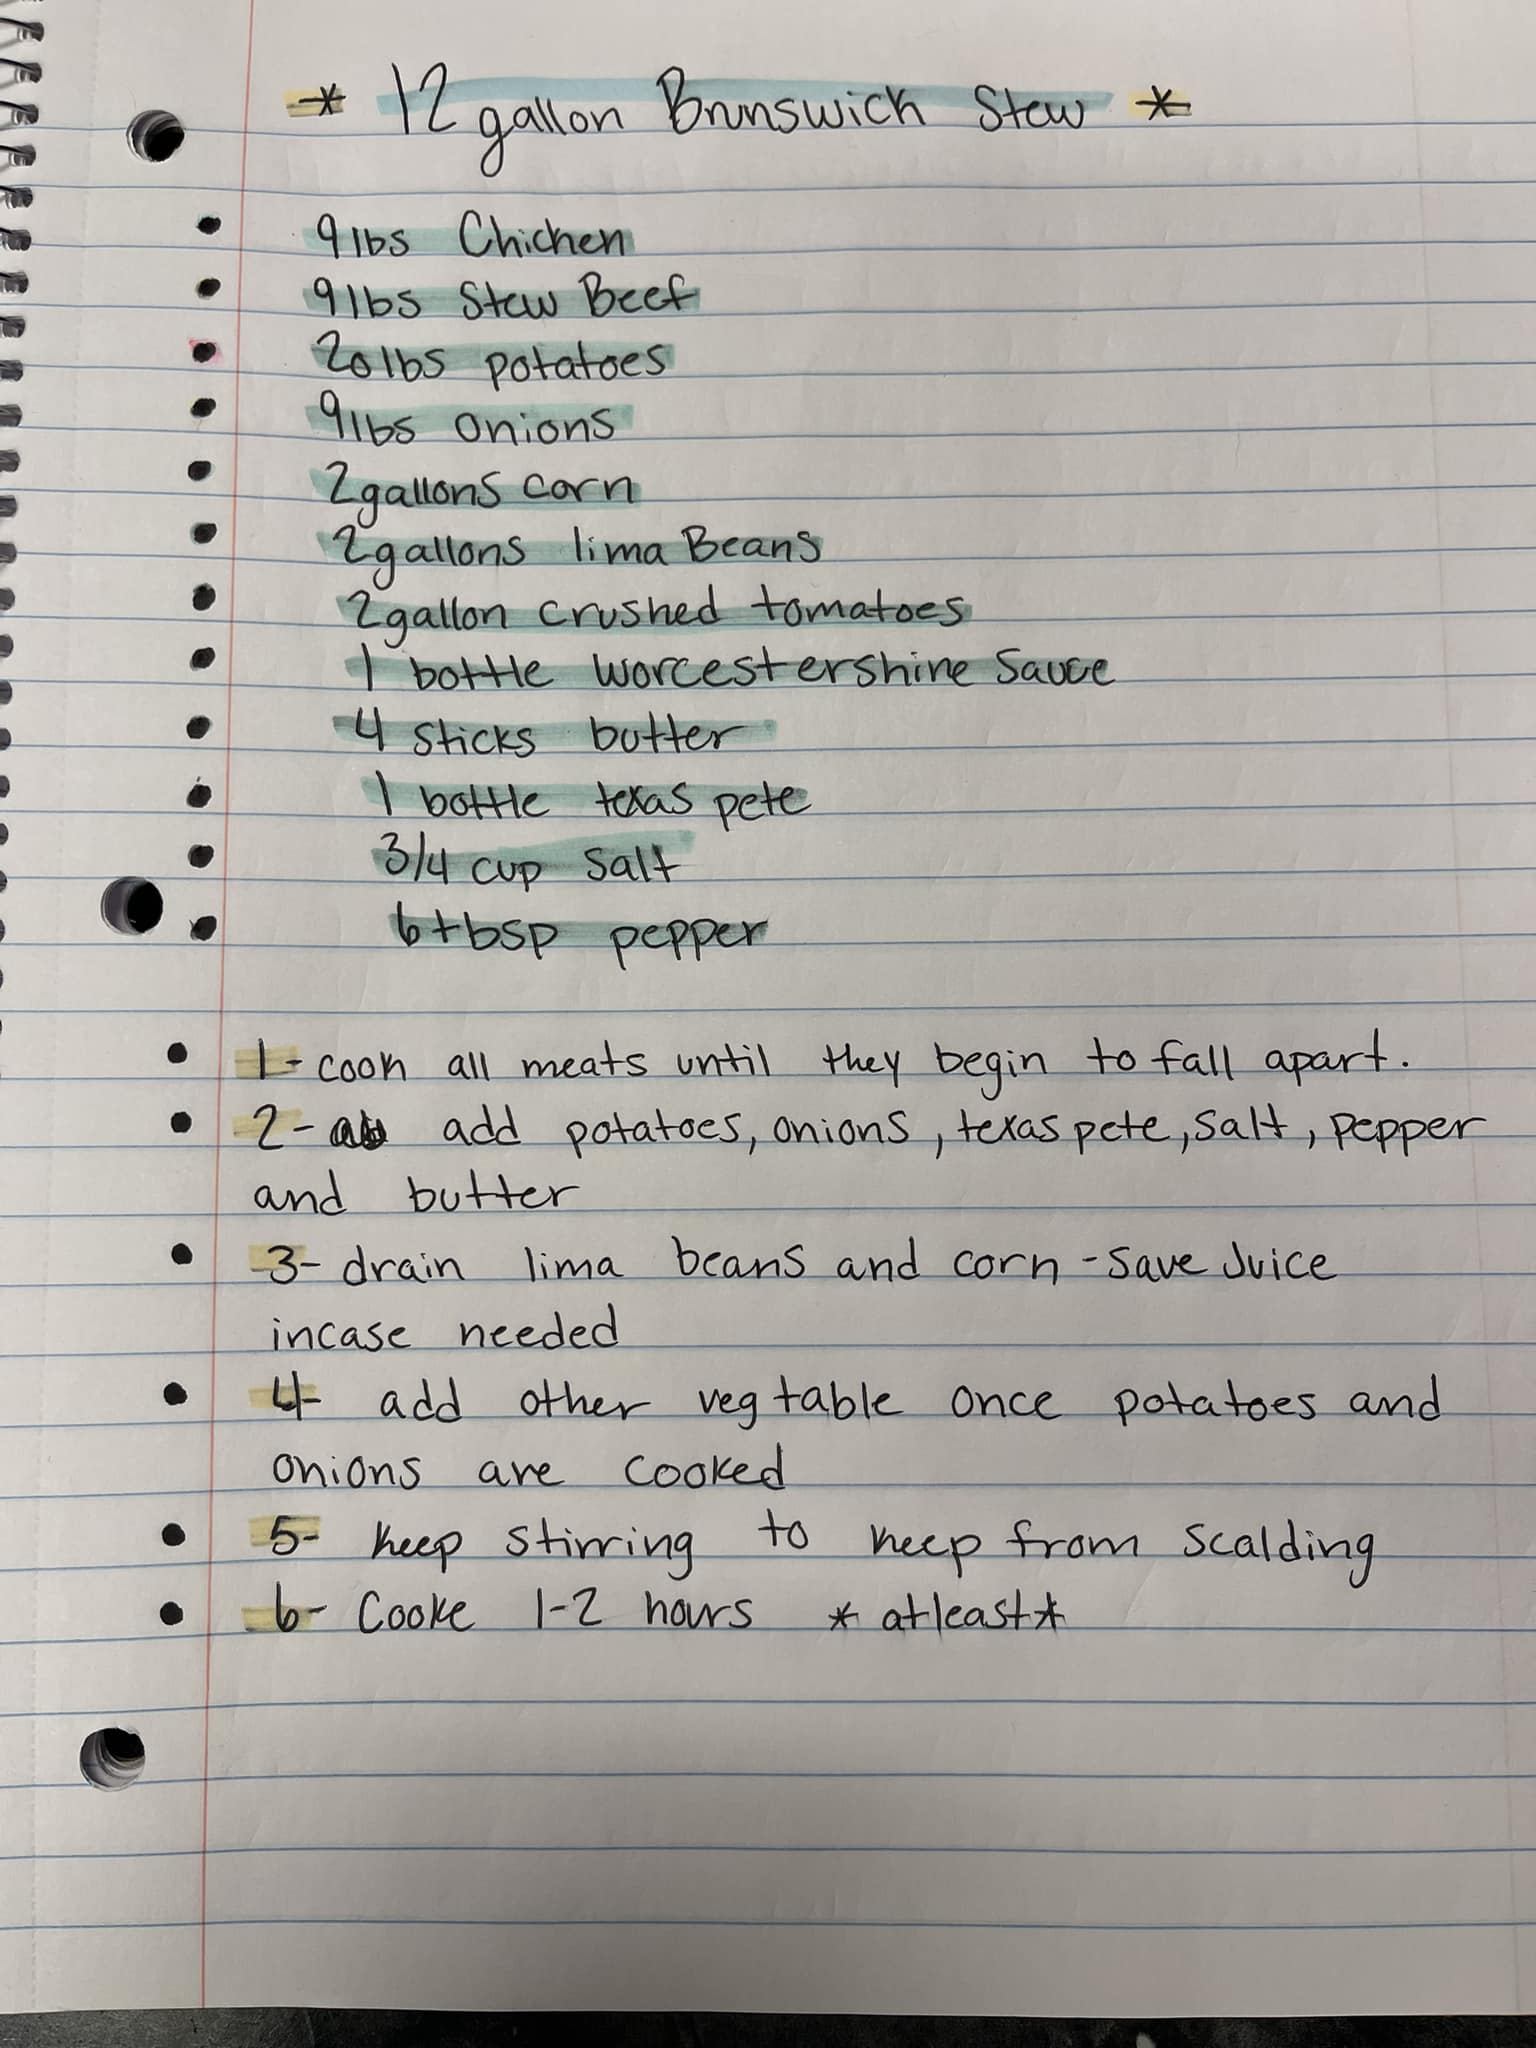 * 12 gallon Brunswick Stew *
• 9lbs Chicken
• 9lbs Stew Beef
• 20lbs potatoes
• 9lbs onions
• 2gallons corn
• 2gallons lima Beans
• 2gallon crushed tomatoes
• 1 bottle worcestershire sauce
• 4 sticks butter
• 1 bottle texas pete
• 3/4 cup salt
• 6tbsp pepper
• 1- cook all meats until they begin to fall apart.
• 2- add potatoes, onions, texas pete, salt, pepper
and butter
• 3- drain lima beans and corn - save Juice
incase needed
• 4- add other vegtable once potatoes and
onions are cooked
• 5- keep stirring to keep from scalding
• 6- Cooke 1-2 hours *atleast*